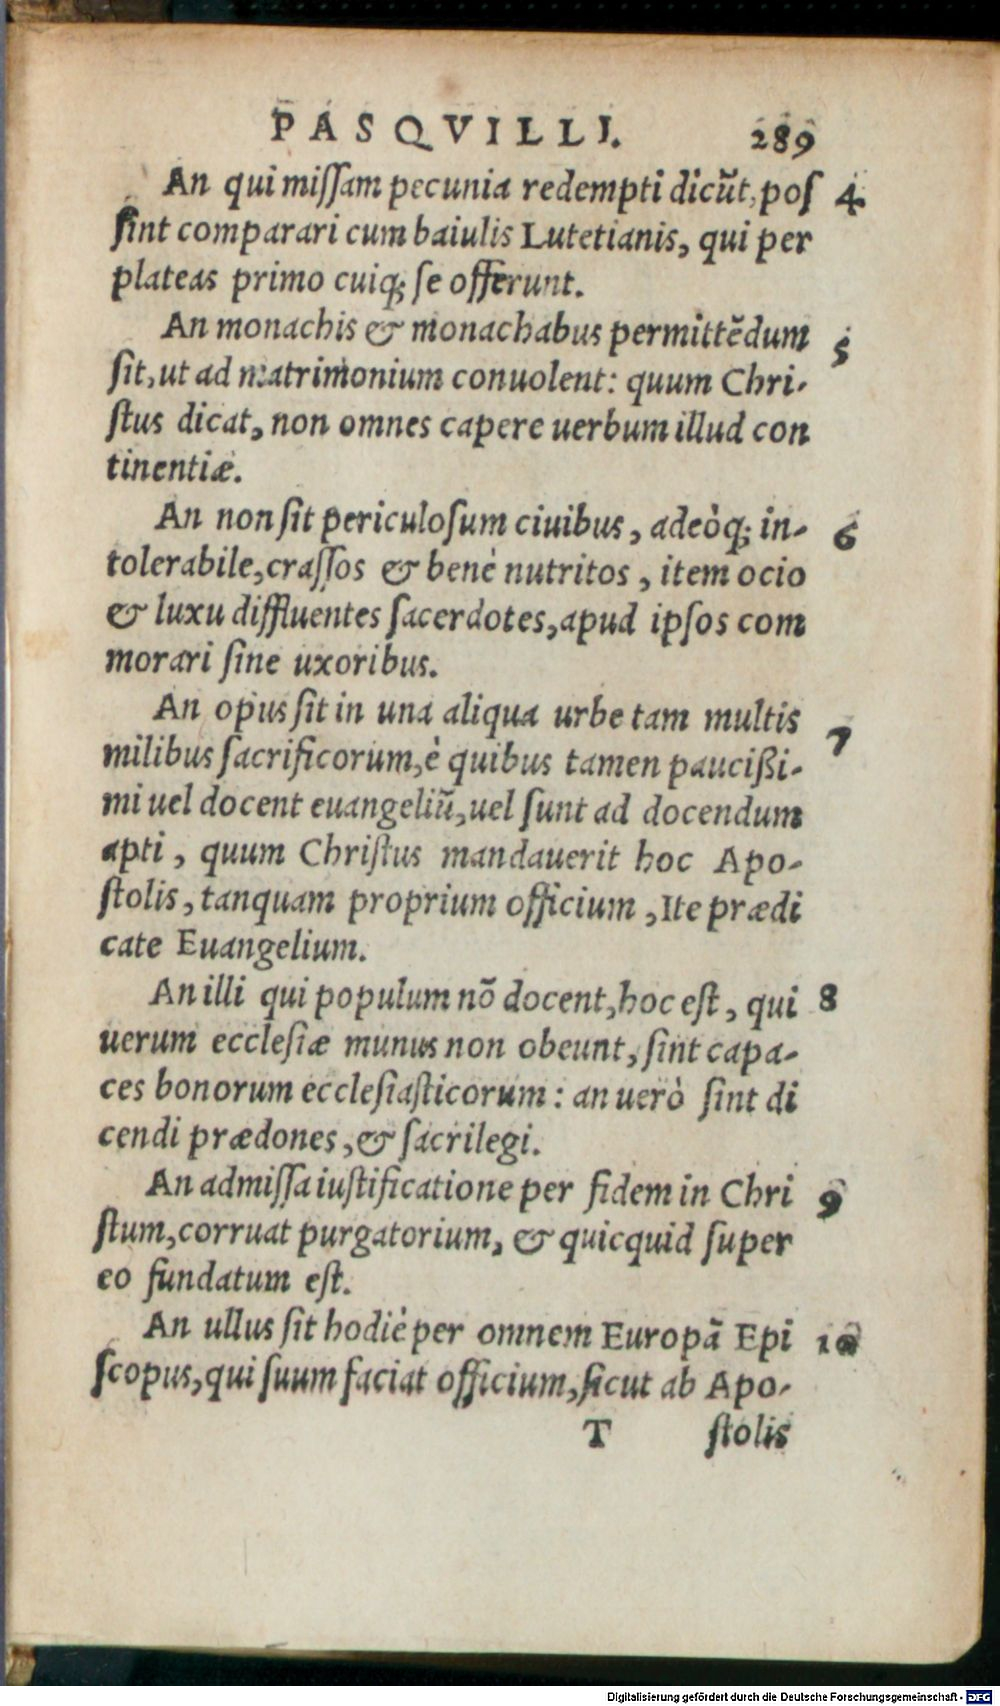 PASQVILLI. 289
An qui miſſam pecunia redempti dicũt, poſ 4
ſint comparari cum baiulis Lutetianis, qui per
plateas primo cuiq; ſe offerunt.
An monachis & monachabus permittẽdum 5
ſit, ut ad matrimonium conuolent: quum Chri-
ſtus dicat, non omnes capere uerbum illud con
tinentiæ.
An non ſit periculoſum ciuibus, adeòq; in- 6
tolerabile, craſſos & benè nutritos, item ocio
& luxu diffluentes ſacerdotes, apud ipſos com
morari ſine uxoribus.
An opus ſit in una aliqua urbe tam multis 7
milibus ſacrificorum, è quibus tamen paucißi-
mi uel docent euangeliũ, uel ſunt ad docendum
apti, quum Chriſtus mandauerit hoc Apo-
ſtolis, tanquam proprium officium, Ite prædi
cate Euangelium.
An illi qui populum nõ docent, hoc eſt, qui 8
uerum eccleſiæ munus non obeunt, ſint capa-
ces bonorum eccleſiaſticorum: an uerò ſint di
cendi prædones, & ſacrilegi.
An admiſſa iuſtificatione per fidem in Chri 9
ſtum, corruat purgatorium, & quicquid ſuper
eo fundatum eſt.
An ullus ſit hodiè per omnem Europã Epi 10
ſcopus, qui ſuum faciat officium, ſicut ab Apo-
T ſtolis
Digitalisierung gefördert durch die Deutsche Forschungsgemeinschaft - DFG